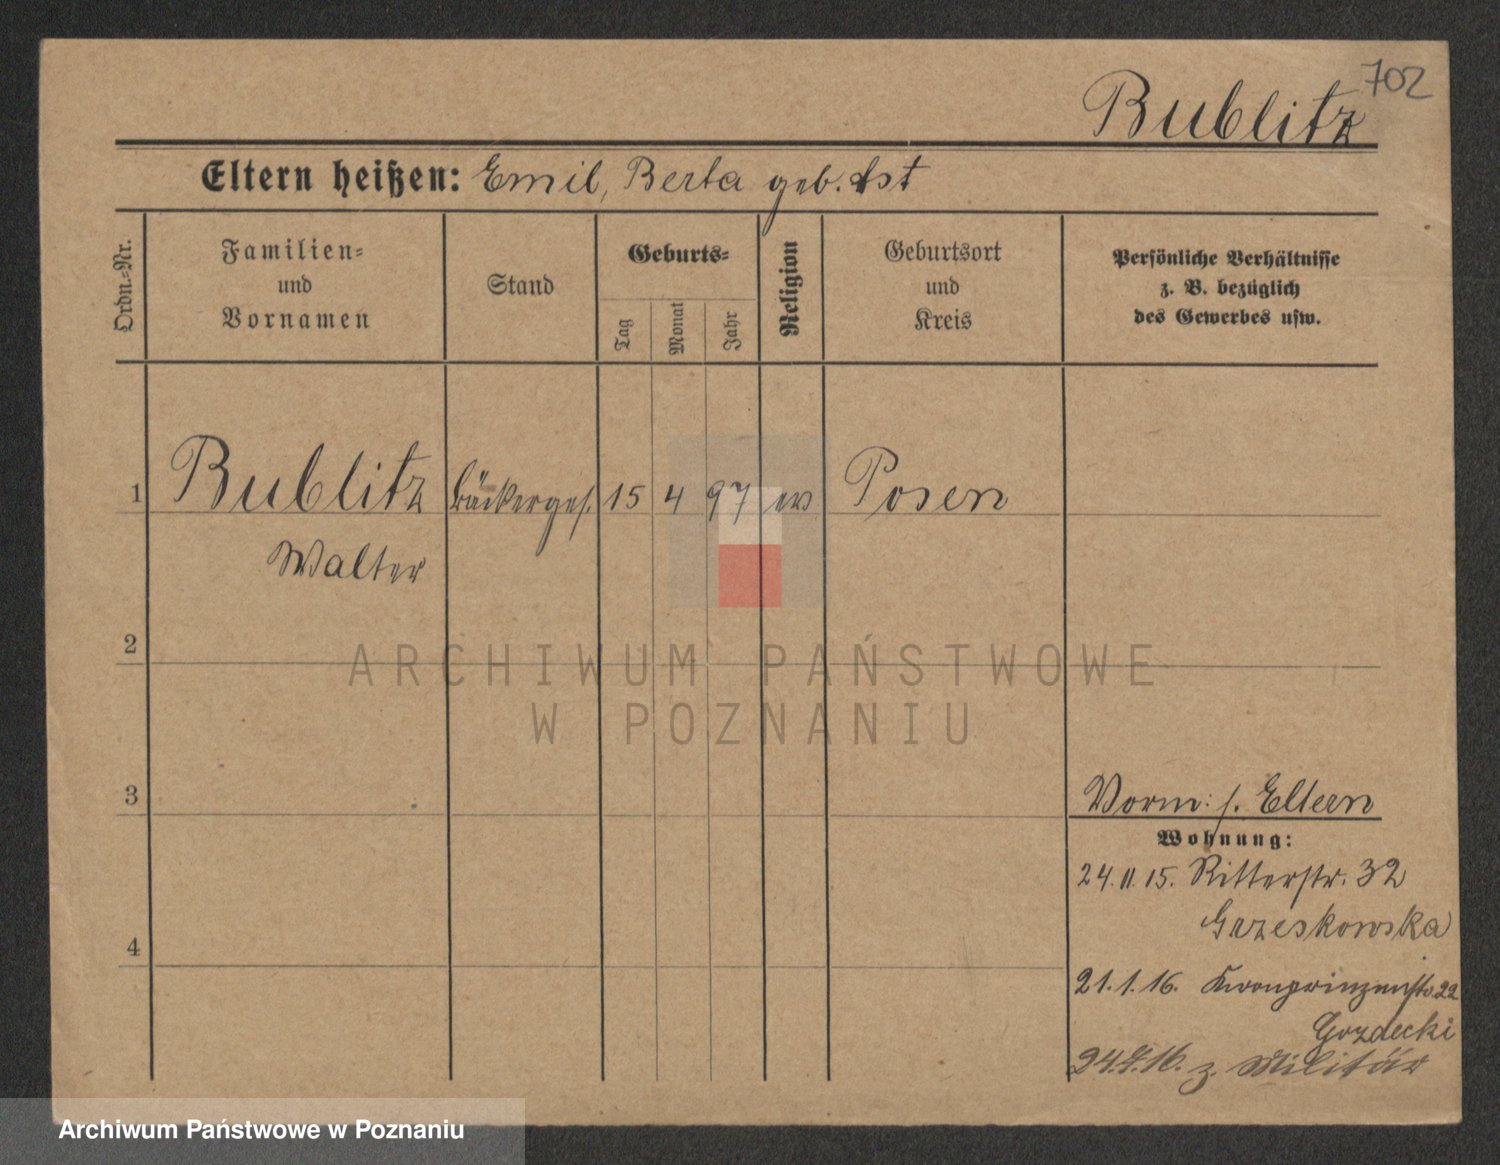 702
Bublitz
Eltern heißen: Emil, Berta geb. Ast
Ordn.-Nr.
Familien-
und
Vornamen
Stand
Geburts-
Tag
Monat
Jahr
Religion
Geburtsort
und
Kreis
Persönliche Verhältnisse
z. B. bezüglich
des Gewerbes usw.
1 Bublitz Bäckerges. 15 4 97 ev Posen
Walter
2
ARCHIWUM PAŃSTWOWE
W POZNANIU
3
Vorm: s. Eltern
Wohnung:
24.11.15. Ritterstr. 32
Grzeskowska
4
21.1.16. Kronprinzenstr. 22
Gozdecki
z. Militär
Archiwum Państwowe w Poznaniu